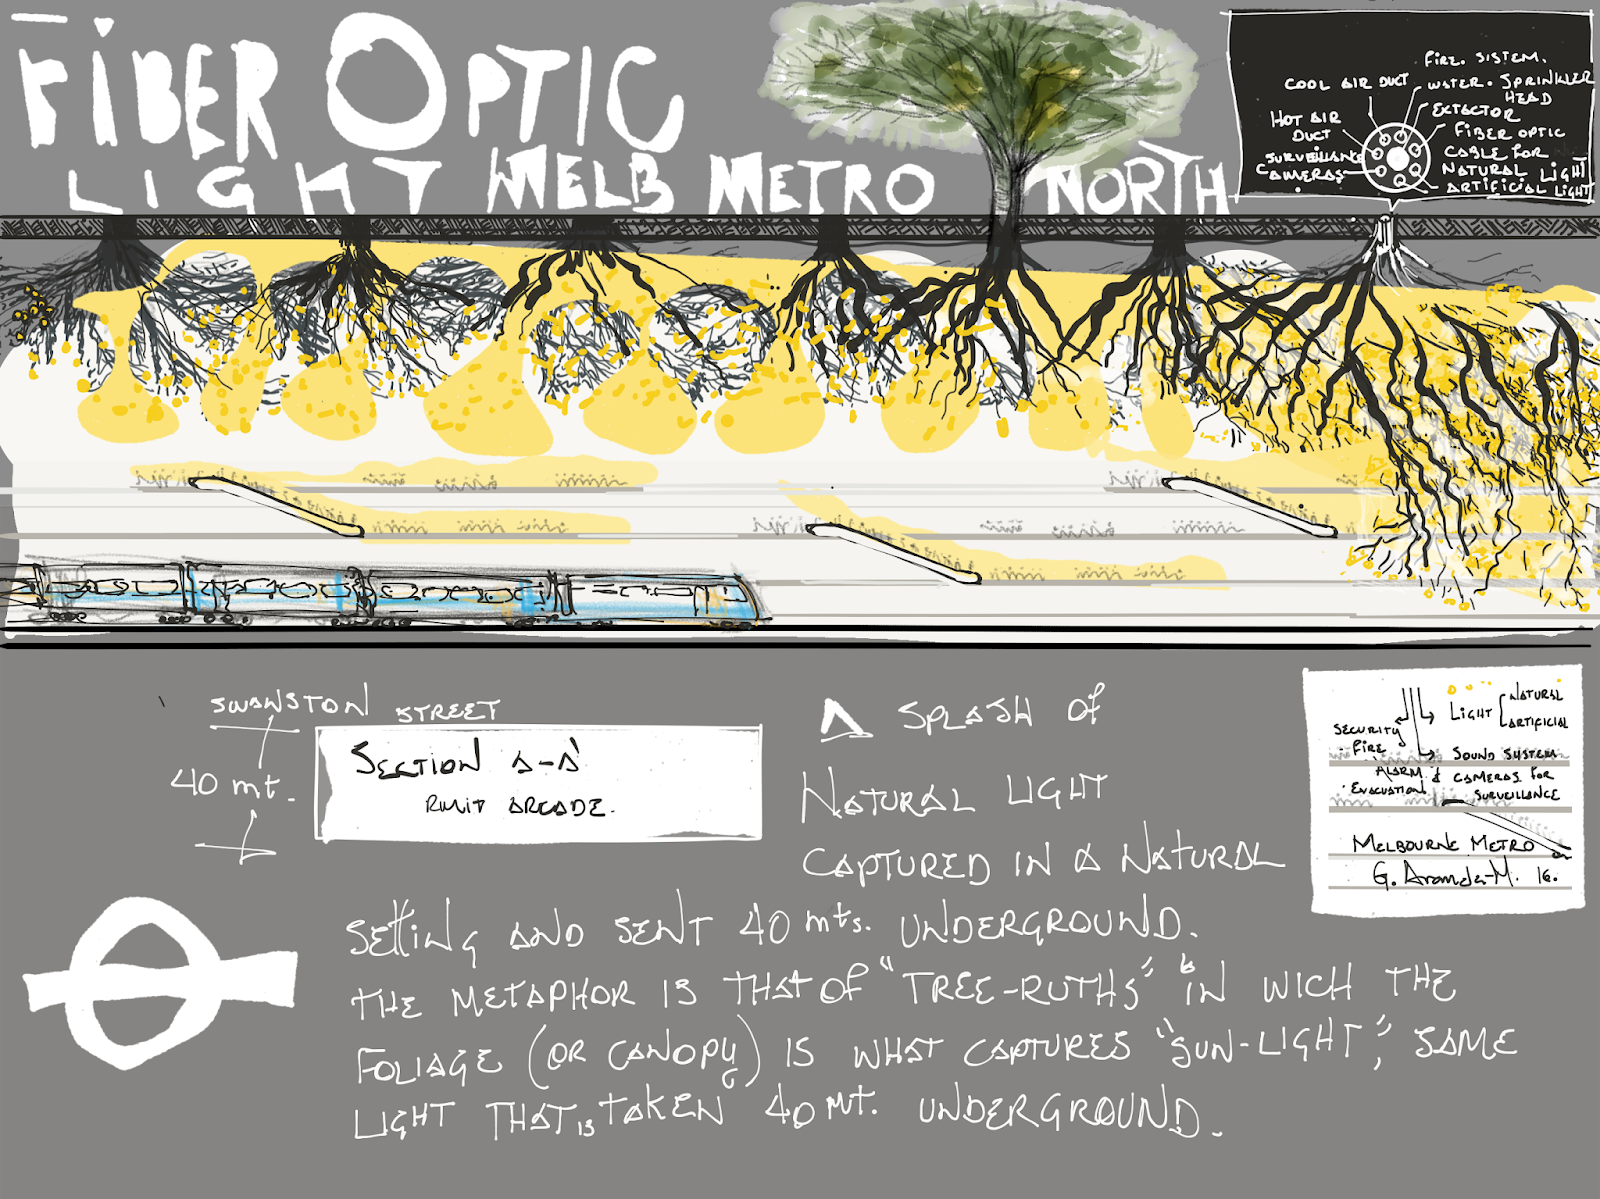 FIBER OPTIC
LIGHT MELB METRO NORTH
FIRE. SISTEM.
COOL AIR DUCT
WATER. SPRINKLER
HEAD
EXTACTOR
HOT AIR
DUCT
FIBER OPTIC
CABLE FOR
NATURAL LIGHT
SURVEILLANCE
CAMERAS
ARTIFICIAL LIGHT
SWANSTON STREET
40 mt.
SECTION A-A'
ARCADE.
A SPLASH OF
NATURAL LIGHT
CAPTURED IN A NATURAL
SETTING AND SENT 40 mts. UNDERGROUND.
THE METAPHOR IS THAT OF "TREE-RUTHS" IN WICH THE
FOLIAGE (OR CANOPY) IS WHAT CAPTURES "SUN-LIGHT", SAME
LIGHT THAT IS TAKEN 40 mt. UNDERGROUND.
LIGHT
NATURAL
ARTIFICIAL
SECURITY
FIRE
ALARM &
EVACUATION
SOUND SYSTEM
CAMERAS FOR
SURVEILLANCE
MELBOURNE METRO
G. Aranda-M. 16.